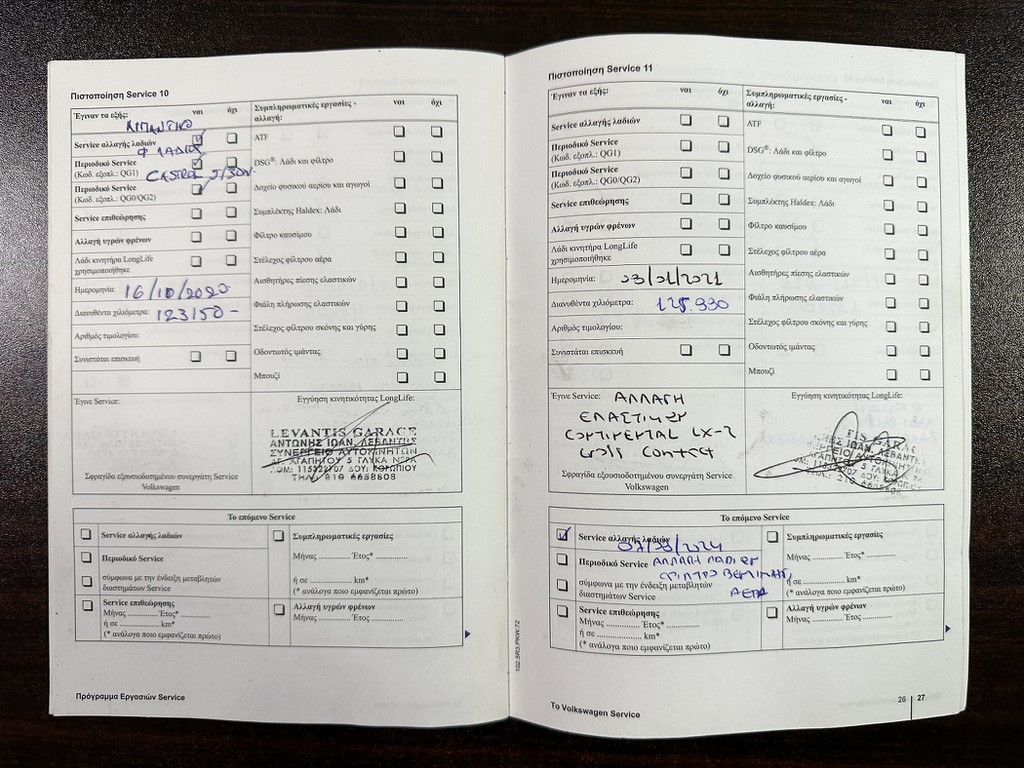 Πιστοποίηση Service 10
Έγιναν τα εξής: ναι όχι
ΛΙΠΑΝΤΙΚΟ
Service αλλαγής λαδιών
Φ ΛΑΔΙΟΥ
Περιοδικό Service
(Κωδ. εξοπλ.: QG1) CASTROL 5/30W-
Περιοδικό Service
(Κωδ. εξοπλ.: QG0/QG2)
Service επιθεώρησης
Αλλαγή υγρών φρένων
Λάδι κινητήρα LongLife
χρησιμοποιήθηκε
Ημερομηνία: 16/10/2020
Διανυθέντα χιλιόμετρα: 123150-
Αριθμός τιμολογίου:
Συνιστάται επισκευή
Συμπληρωματικές εργασίες - ναι όχι
αλλαγή:
ATF
DSG®: Λάδι και φίλτρο
Δοχείο φυσικού αερίου και αγωγοί
Συμπλέκτης Haldex: Λάδι
Φίλτρο καυσίμου
Στέλεχος φίλτρου αέρα
Αισθητήρες πίεσης ελαστικών
Φιάλη πλήρωσης ελαστικών
Στέλεχος φίλτρου σκόνης και γύρης
Οδοντωτός ιμάντας
Μπουζί
Έγινε Service:
Εγγύηση κινητικότητας LongLife:
LEVANTIS GARAGE
ΑΝΤΩΝΗΣ ΙΩΑΝ. ΛΕΒΑΝΤΗΣ
ΣΥΝΕΡΓΕΙΟ ΑΥΤΟΚΙΝΗΤΩΝ
ΑΓ. ΑΓΑΠΗΤΟΥ 5 ΓΛΥΚΑ ΝΕΡΑ
ΑΦΜ: 115322707 ΔΟΥ: ΚΟΡΩΠΙΟΥ
ΤΗΛ: 210 6658608
Σφραγίδα εξουσιοδοτημένου συνεργάτη Service
Volkswagen
Το επόμενο Service
Service αλλαγής λαδιών
Περιοδικό Service
σύμφωνα με την ένδειξη μεταβλητών
διαστημάτων Service
Service επιθεώρησης
Μήνας ........... Έτος* ...........
ή σε .................. km*
(* ανάλογα ποιο εμφανίζεται πρώτο)
Συμπληρωματικές εργασίες
Μήνας ........... Έτος* .............
ή σε .................. km*
(* ανάλογα ποιο εμφανίζεται πρώτο)
Αλλαγή υγρών φρένων
Μήνας ........... Έτος ...........
Πρόγραμμα Εργασιών Service
Πιστοποίηση Service 11
Έγιναν τα εξής: ναι όχι
Service αλλαγής λαδιών
Περιοδικό Service
(Κωδ. εξοπλ.: QG1)
Περιοδικό Service
(Κωδ. εξοπλ.: QG0/QG2)
Service επιθεώρησης
Αλλαγή υγρών φρένων
Λάδι κινητήρα LongLife
χρησιμοποιήθηκε
Ημερομηνία: 23/01/2021
Διανυθέντα χιλιόμετρα: 125.930
Αριθμός τιμολογίου:
Συνιστάται επισκευή
Συμπληρωματικές εργασίες - ναι όχι
αλλαγή:
ATF
DSG®: Λάδι και φίλτρο
Δοχείο φυσικού αερίου και αγωγοί
Συμπλέκτης Haldex: Λάδι
Φίλτρο καυσίμου
Στέλεχος φίλτρου αέρα
Αισθητήρες πίεσης ελαστικών
Φιάλη πλήρωσης ελαστικών
Στέλεχος φίλτρου σκόνης και γύρης
Οδοντωτός ιμάντας
Μπουζί
Έγινε Service: ΑΛΛΑΓΗ
ΕΛΑΣΤΙΚΩΝ
CONTINENTAL LX-2
Cross Contact
Εγγύηση κινητικότητας LongLife:
Σφραγίδα εξουσιοδοτημένου συνεργάτη Service
Volkswagen
Το επόμενο Service
Service αλλαγής λαδιών
Περιοδικό Service ΑΛΛΑΓΗ ΛΑΔΙΩΝ
ΦΙΛΤΡΟ ΒΕΝΖΙΝΗΣ,
σύμφωνα με την ένδειξη μεταβλητών
διαστημάτων Service ΑΕΡΑ
Service επιθεώρησης
Μήνας ........... Έτος* ...........
ή σε .................. km*
(* ανάλογα ποιο εμφανίζεται πρώτο)
Συμπληρωματικές εργασίες
Μήνας ........... Έτος* .............
ή σε .................. km*
(* ανάλογα ποιο εμφανίζεται πρώτο)
Αλλαγή υγρών φρένων
Μήνας ........... Έτος ...........
102.5R3.PKW.72
Το Volkswagen Service
26 | 27